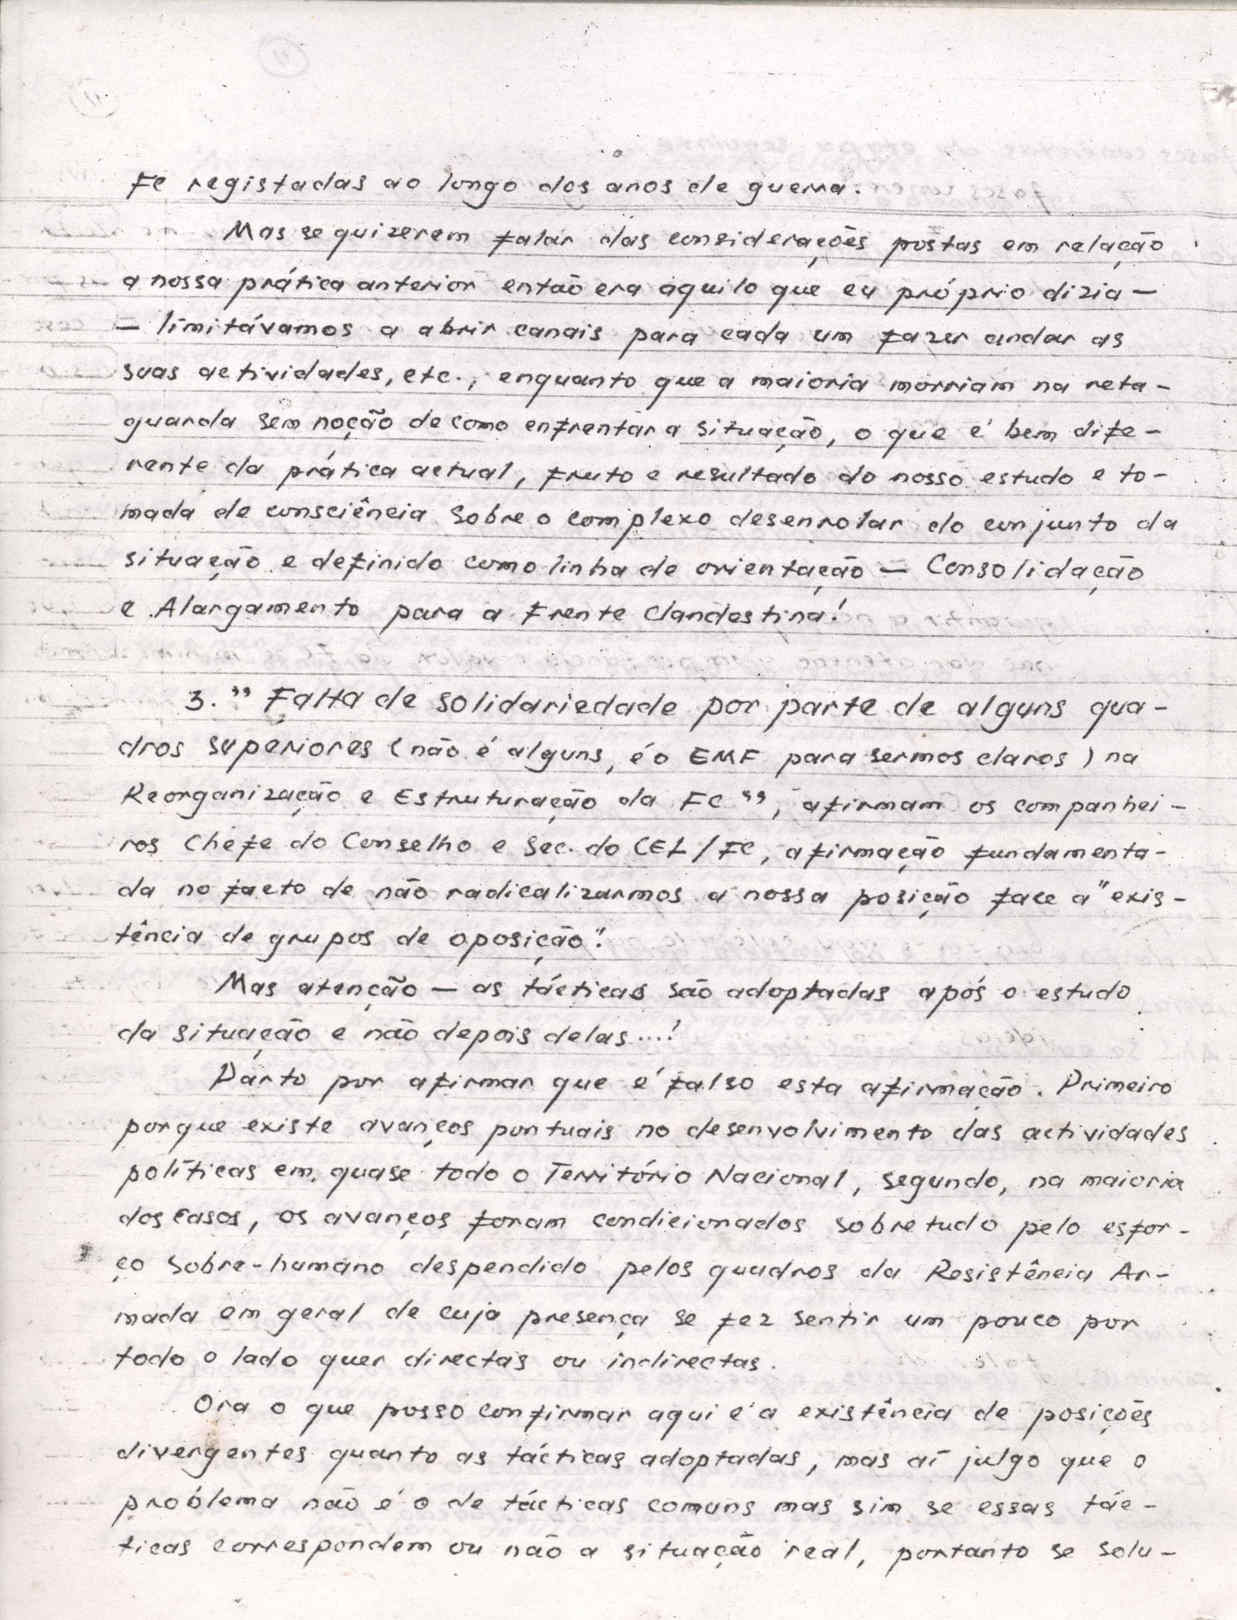 FC registadas ao longo dos anos de guerra.
Mas se quizerem falar das considerações postas em relação
a nossa prática anterior então era aquilo que eu próprio dizia —
— limitávamos a abrir canais para cada um fazer andar as
suas actividades, etc., enquanto que a maioria morriam na reta-
guarda sem noção de como enfrentar a situação, o que é bem dife-
rente da prática actual, fruto e resultado do nosso estudo e to-
mada de consciência sobre o complexo desenrolar do conjunto da
situação e definido como linha de orientação — Consolidação
e Alargamento para a Frente Clandestina!
3. " Falta de solidariedade por parte de alguns qua-
dros superiores (não é alguns, é o EMF para sermos claros) na
Reorganização e Estruturação da FC ", afirmam os companhei-
ros Chefe do Conselho e Sec. do CEL/FC, afirmação fundamenta-
da no facto de não radicalizarmos a nossa posição face a "exis-
tência de grupos de oposição".
Mas atenção — as tácticas são adoptadas após o estudo
da situação e não depois delas...!
Parto por afirmar que é falso esta afirmação. Primeiro
porque existe avanços pontuais no desenvolvimento das actividades
políticas em quase todo o Território Nacional, segundo, na maioria
dos casos, os avanços foram condicionados sobretudo pelo esfor-
ço sobre-humano despendido pelos quadros da Resistência Ar-
mada em geral de cuja presença se fez sentir um pouco por
todo o lado quer directas ou indirectas.
Ora o que posso confirmar aqui é a existência de posições
divergentes quanto as tácticas adoptadas, mas aí julgo que o
problema não é o de tácticas comuns mas sim se essas tác-
ticas correspondem ou não a situação real, portanto se solu-